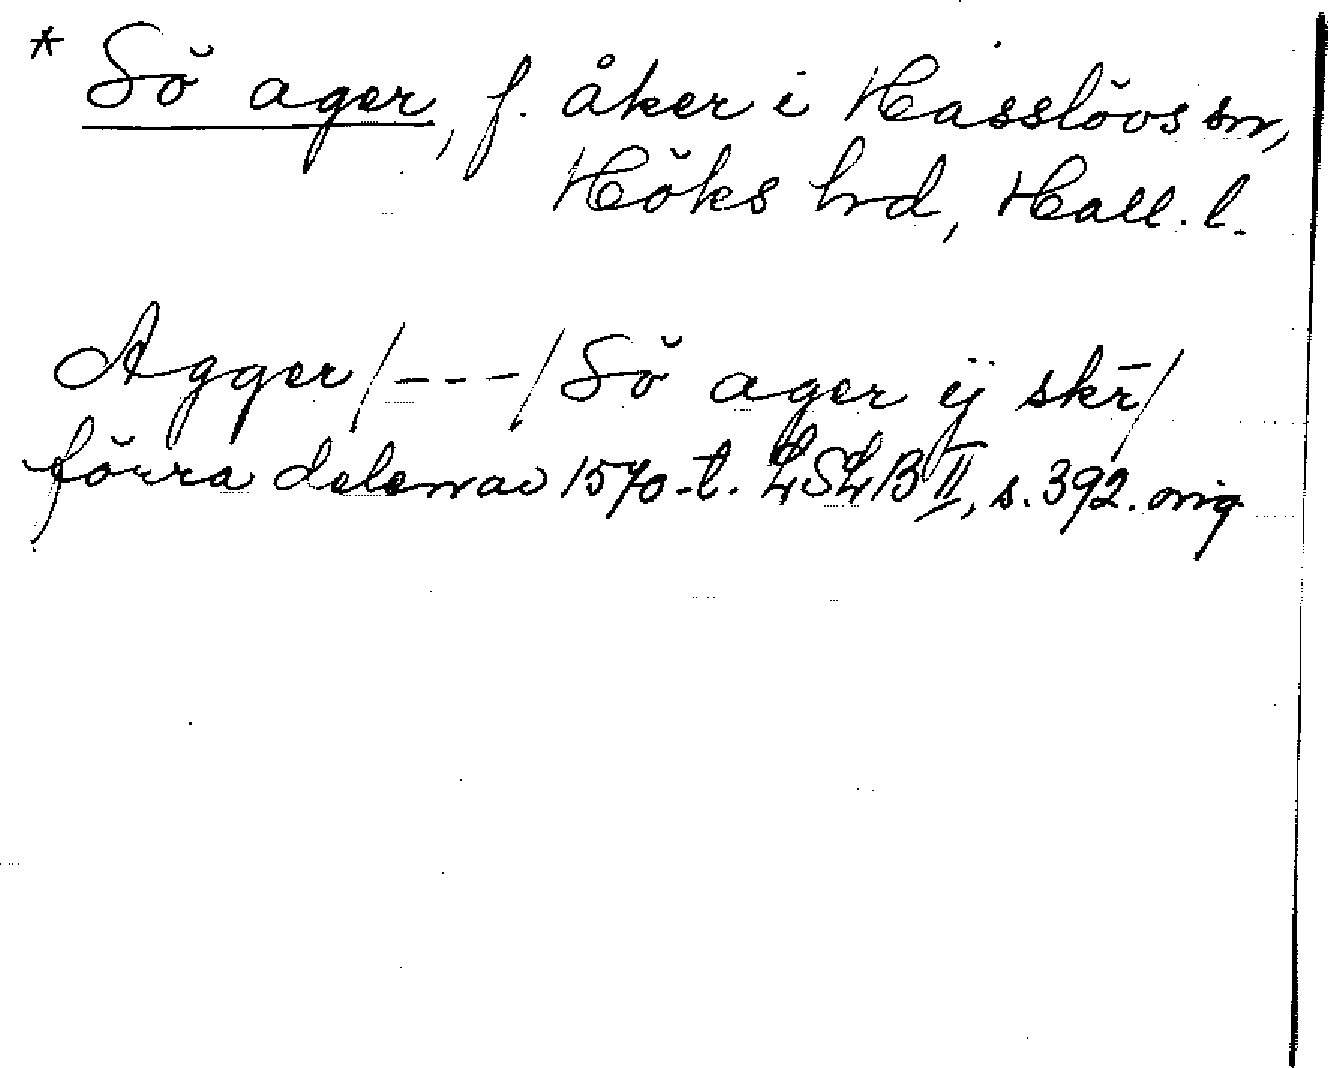 * Sö ager, f. åker i Hasslövs sn,
Höks hrd, Hall. l.
Agger /---/ Sö ager ij skr̄/
förra delen av 1570-t. LSLB II, s. 392. orig